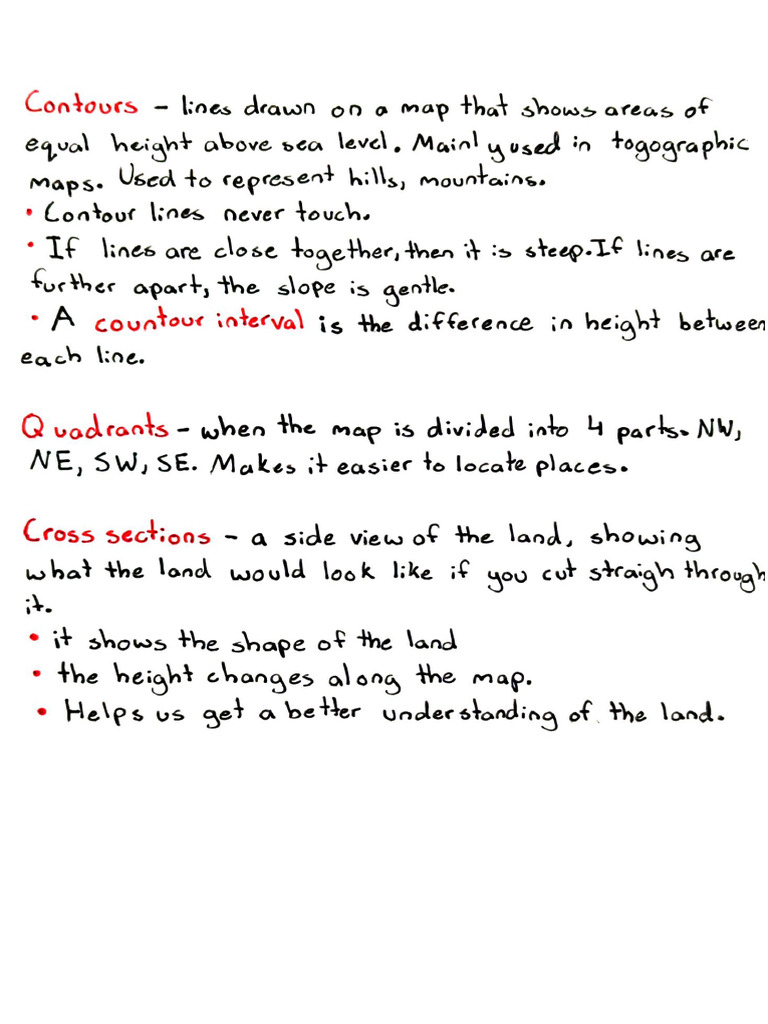 Contours - lines drawn on a map that shows areas of
equal height above sea level. Mainly used in togographic
maps. Used to represent hills, mountains.
• Contour lines never touch.
• If lines are close together, then it is steep. If lines are
further apart, the slope is gentle.
• A countour interval is the difference in height between
each line.
Quadrants - when the map is divided into 4 parts. NW,
NE, SW, SE. Makes it easier to locate places.
Cross sections - a side view of the land, showing
what the land would look like if you cut straigh through
it.
• it shows the shape of the land
• the height changes along the map.
• Helps us get a better understanding of the land.